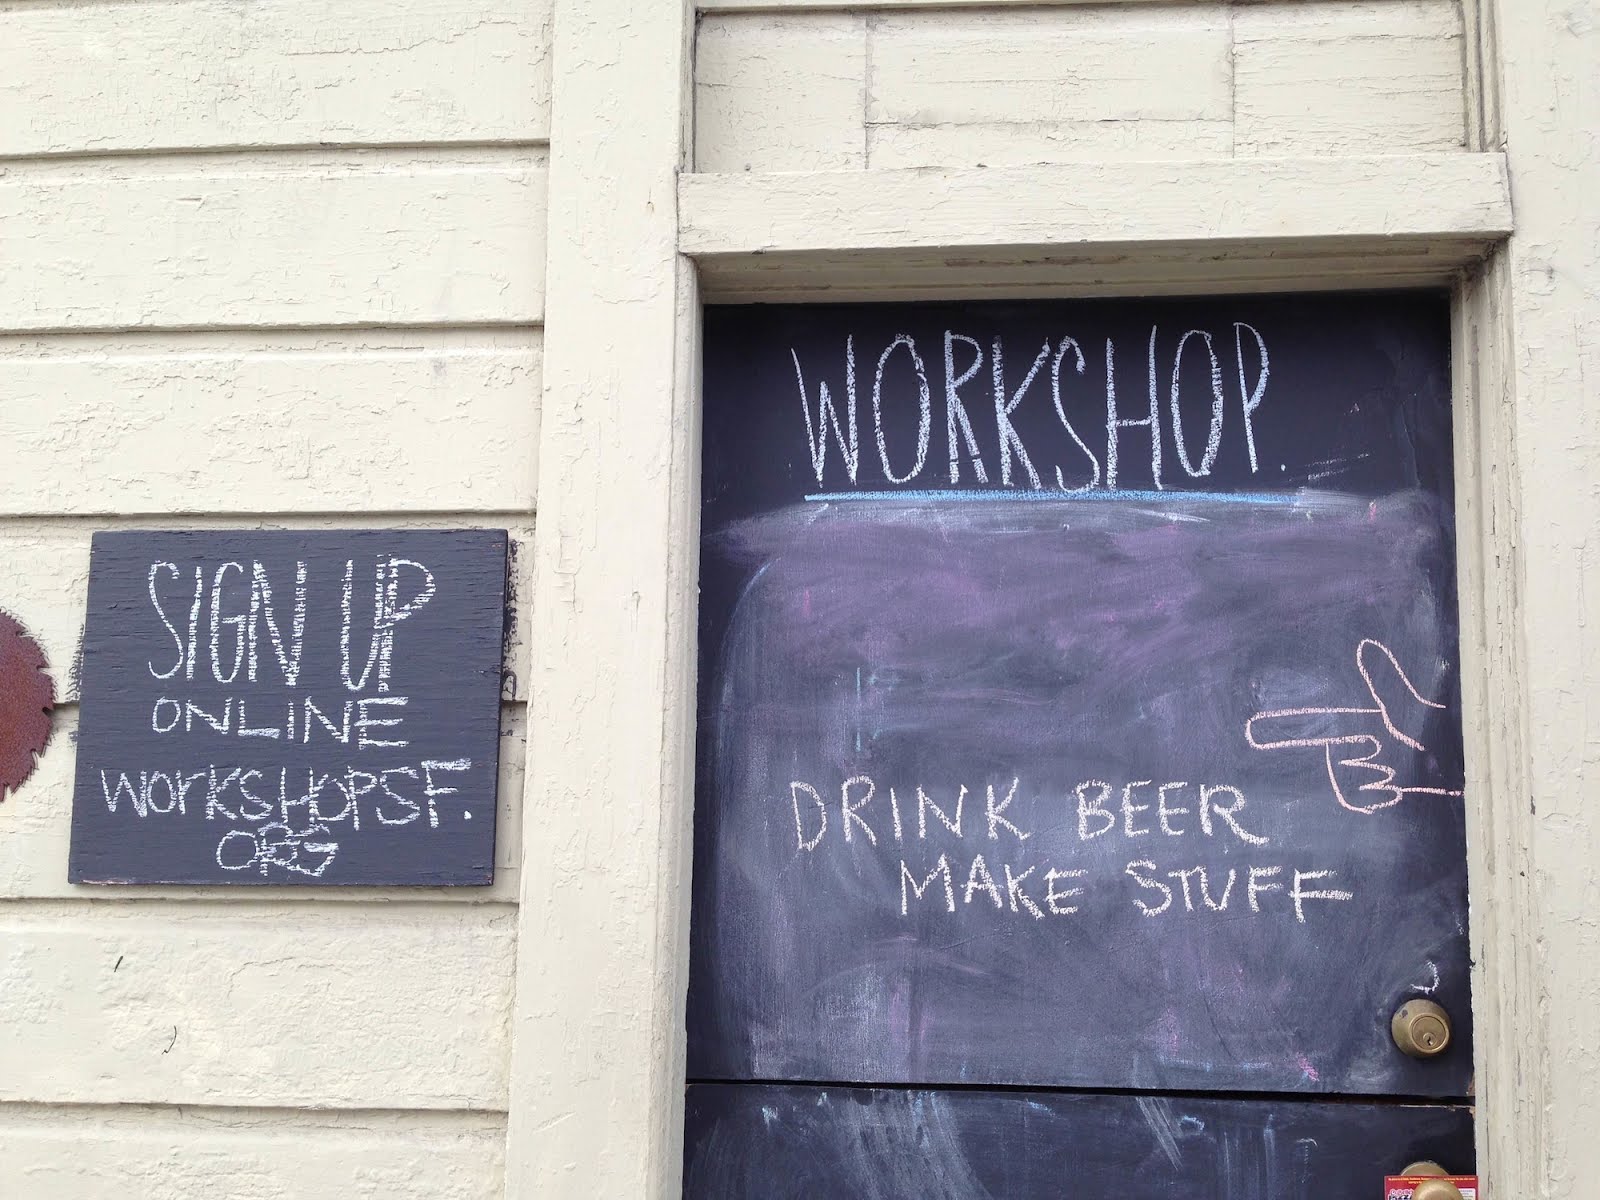 SIGN UP
ONLINE
WORKSHOPSF.
ORG
WORKSHOP.
DRINK BEER
MAKE STUFF